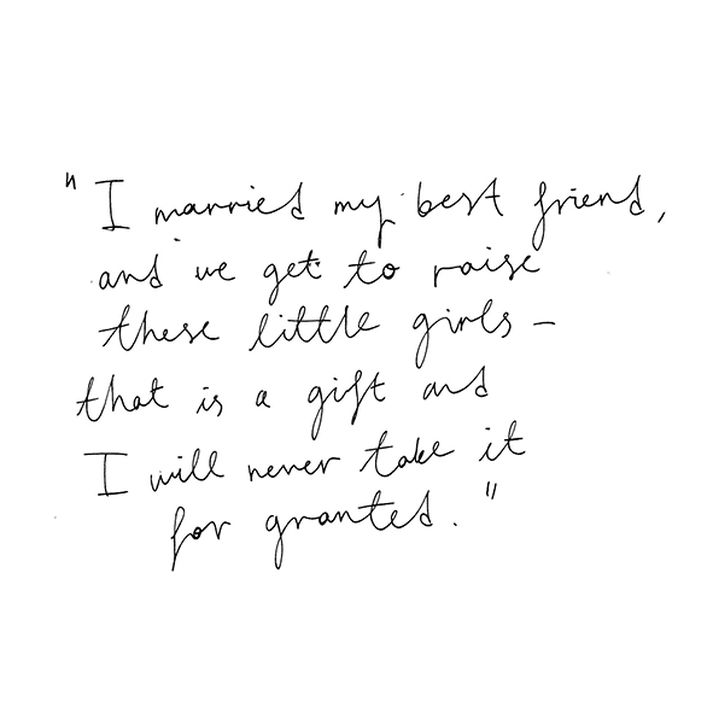 "I married my best friend,
and we get to raise
these little girls –
that is a gift and
I will never take it
for granted."